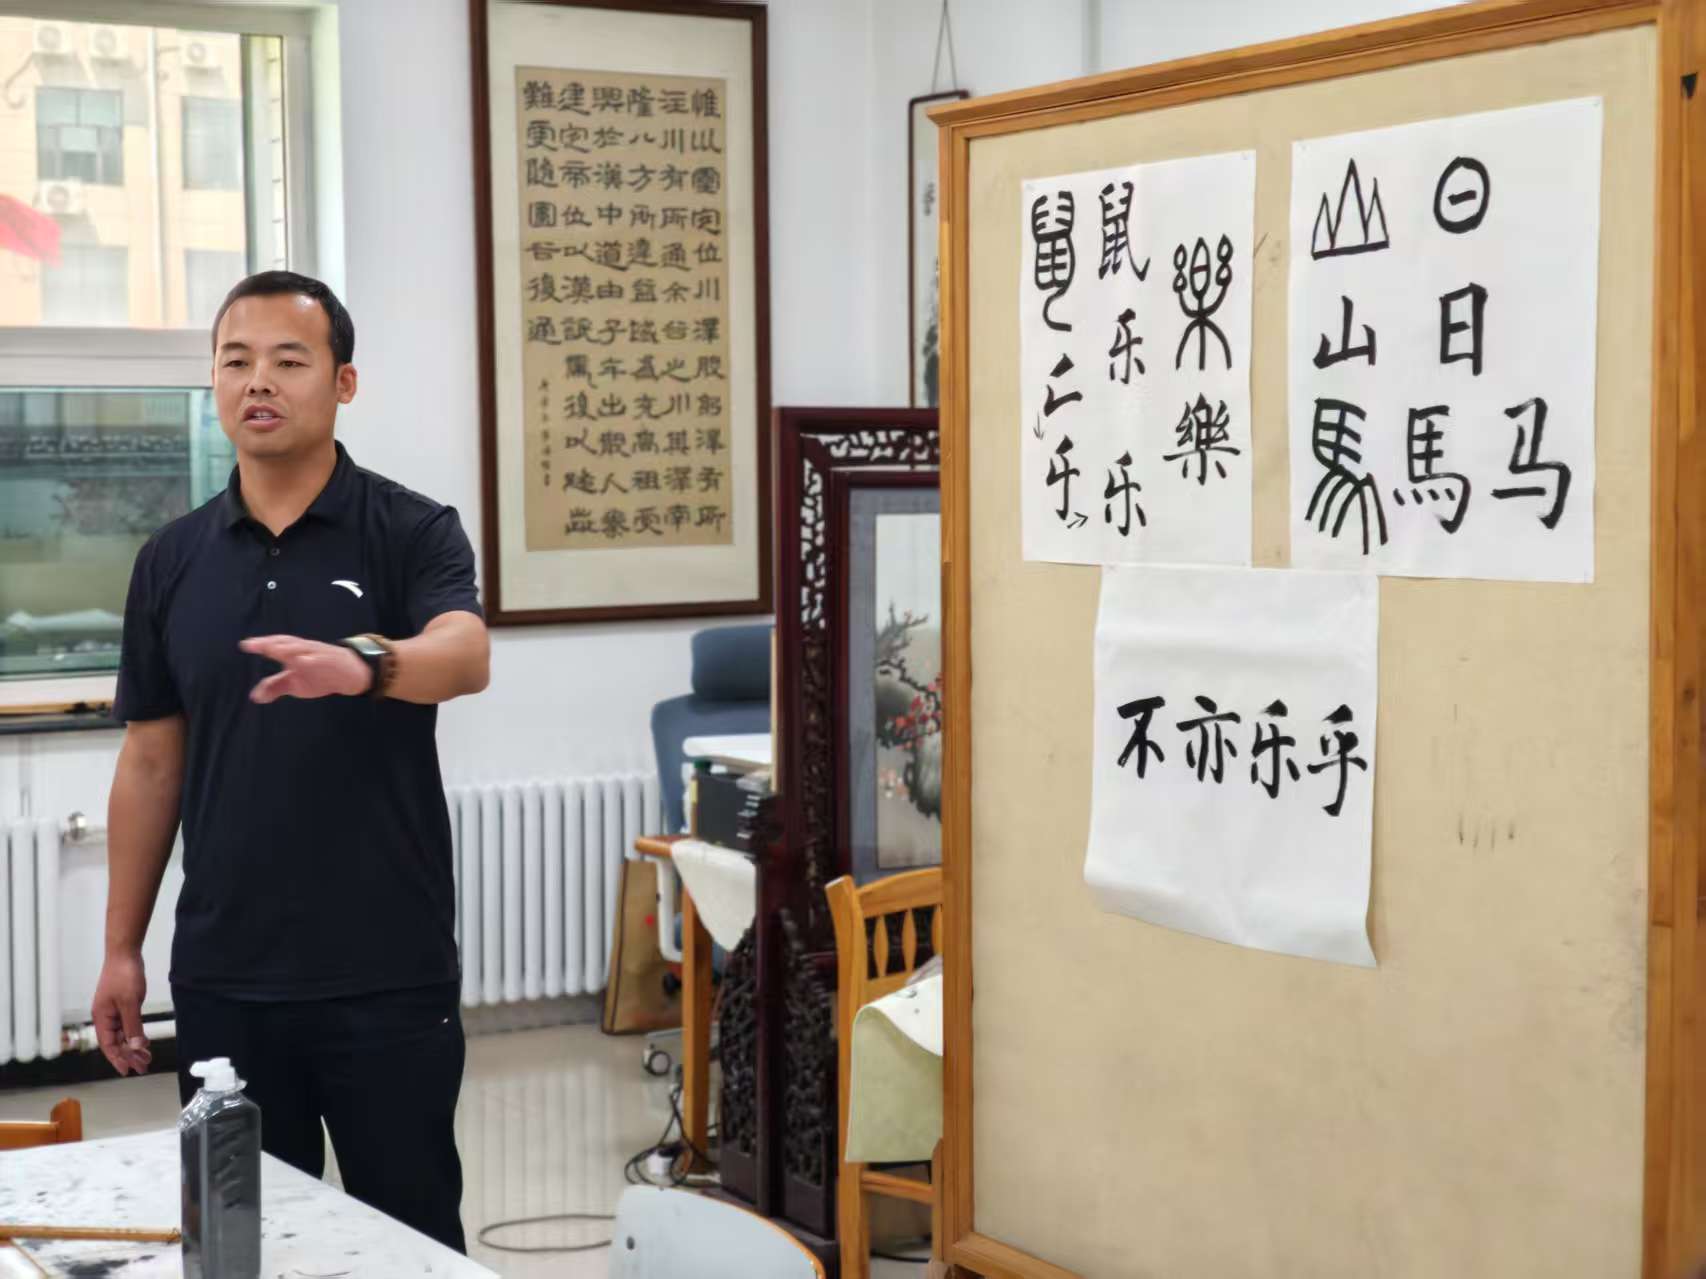 惟以靈定位川澤股躬澤有所
注川有所通余谷之川其澤南
隆八方所達益域為充高祖受
興於漢中道由子午出散入秦
建定帝位以漢詆焉復以
難更隨圍谷復通
鼠 鼠 樂
乐
樂
乐
山 日
山 日
馬 馬 马
不亦乐乎